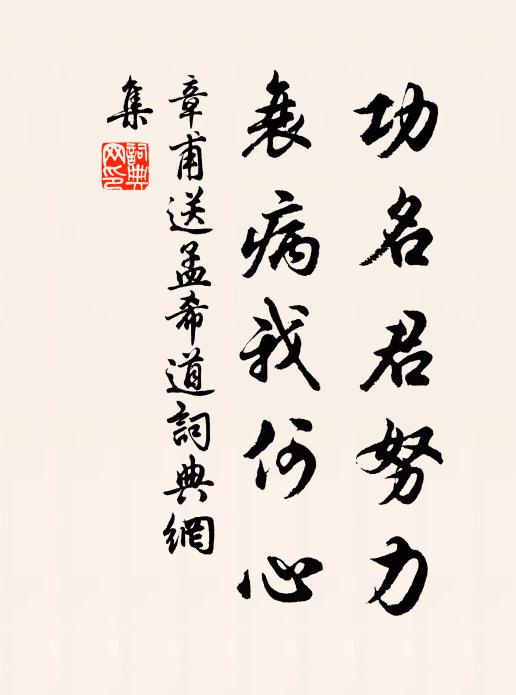 功名君努力
衰病我何心
章甫送孟希道詞典網
集
詞典
网印